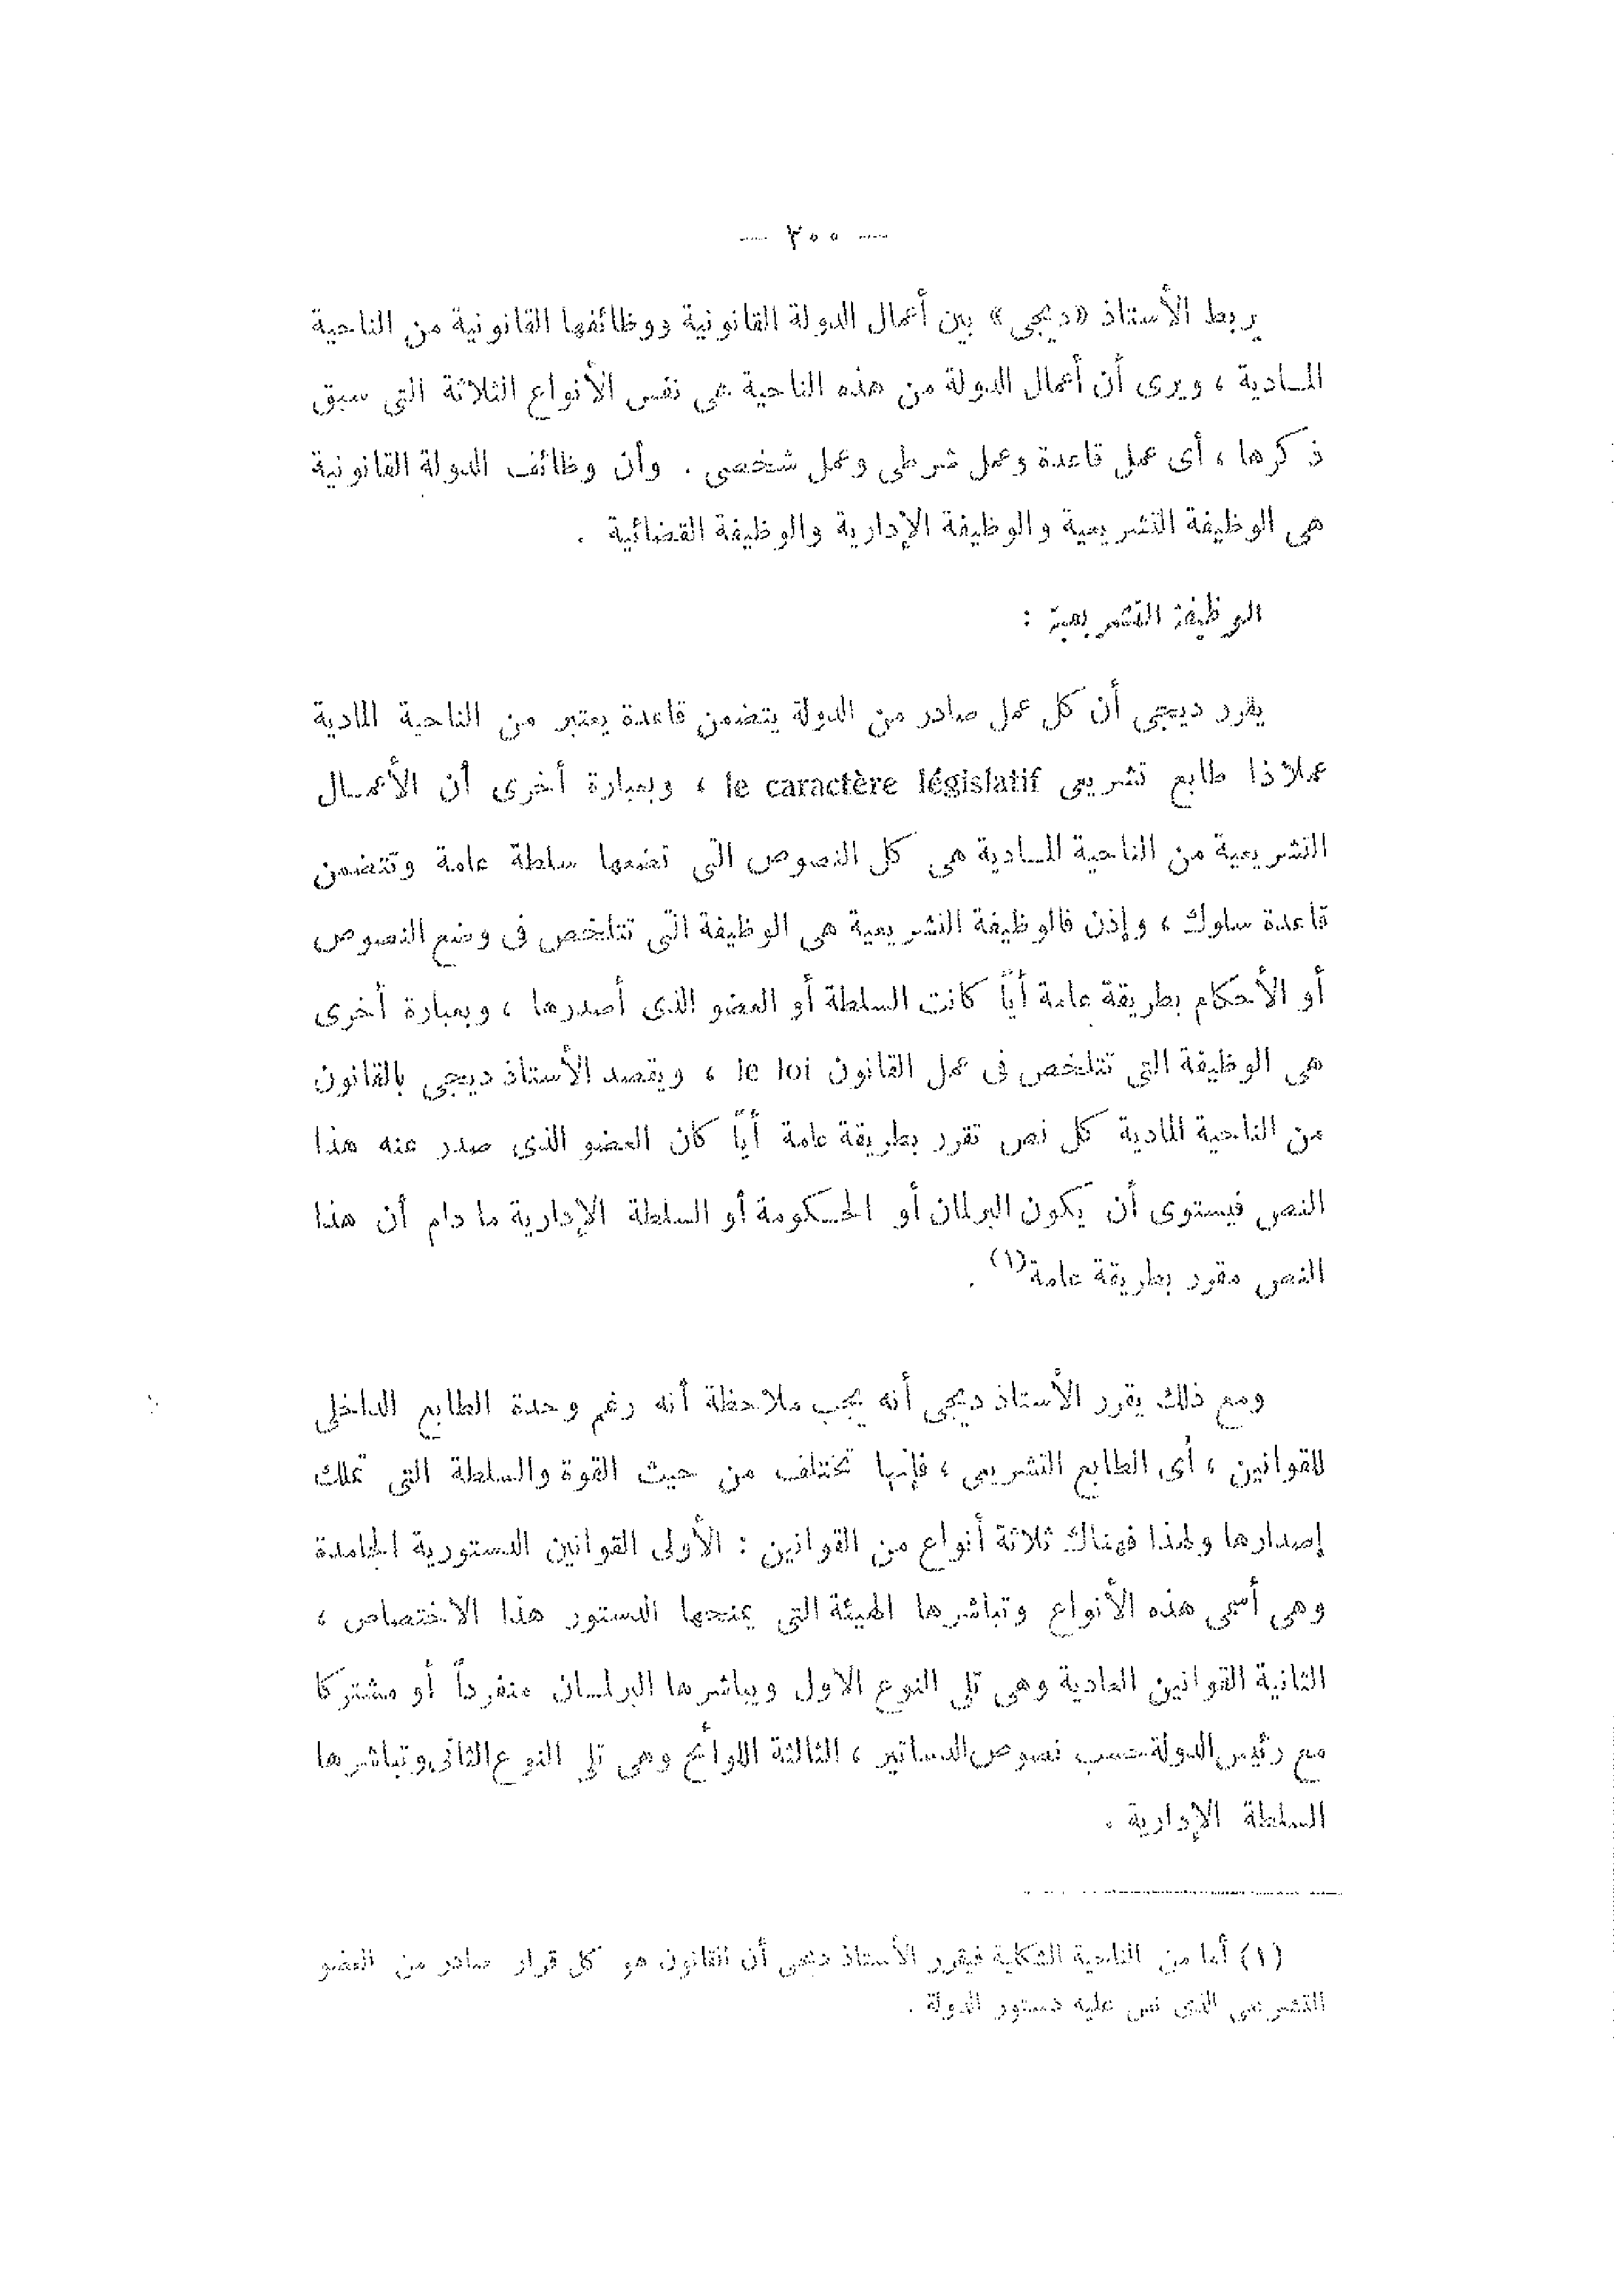 — ٢٠٠ —
يربط الأستاذ «ديجى» بين أعمال الدولة القانونية ووظائفها القانونية من الناحية
المادية ، ويرى أن أعمال الدولة من هذه الناحية هى نفس الأنواع الثلاثة التى سبق
ذكرها ، أى عمل قاعدة وعمل شرطى وعمل شخصى . وأن وظائف الدولة القانونية
هى الوظيفة التشريعية والوظيفة الإدارية والوظيفة القضائية .
الوظيفة التشريعية :
يقرر ديجى أن كل عمل صادر من الدولة يتضمن قاعدة يعتبر من الناحية المادية
عملا ذا طابع تشريعى le caractère législatif ، وبعبارة أخرى أن الأعمال
التشريعية من الناحية المادية هى كل النصوص التى تضعها سلطة عامة وتتضمن
قاعدة سلوك ، وإذن فالوظيفة التشريعية هى الوظيفة التى تتلخص فى وضع النصوص
أو الأحكام بطريقة عامة أيّاً كانت السلطة أو العضو الذى أصدرها ، وبعبارة أخرى
هى الوظيفة التى تتلخص فى عمل القانون le loi ، ويقصد الأستاذ ديجى بالقانون
من الناحية المادية كل نص تقرر بطريقة عامة أيّاً كان العضو الذى صدر عنه هذا
النص فيستوى أن يكون البرلمان أو الحكومة أو السلطة الإدارية ما دام أن هذا
النص مقرر بطريقة عامة(١) .
ومع ذلك يقرر الأستاذ ديجى أنه يجب ملاحظة أنه رغم وحدة الطابع الداخلى
للقوانين ، أى الطابع التشريعى ، فإنها تختلف من حيث القوة والسلطة التى تملك
إصدارها ولهذا فهناك ثلاثة أنواع من القوانين : الأولى القوانين الدستورية الجامدة
وهى أسمى هذه الأنواع وتباشرها الهيئة التى يمنحها الدستور هذا الاختصاص ،
الثانية القوانين العادية وهى تلى النوع الاول ويباشرها البرلمان منفرداً أو مشتركا
مع رئيس الدولة حسب نصوص الدساتير ، الثالثة اللوائح وهى تلى النوع الثانى وتباشرها
السلطة الإدارية .
(١) أما من الناحية الشكلية فيقرر الأستاذ ديجى أن القانون هو كل قرار صادر من العضو
التشريعى الذى نص عليه دستور الدولة .